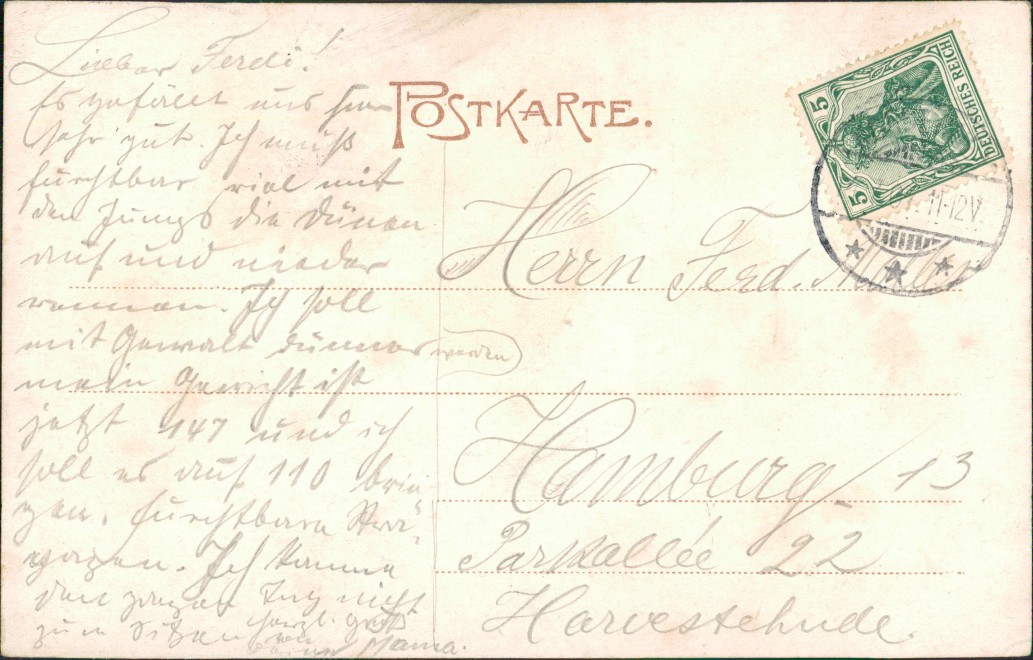 Lieber Ferdi!
Es gefällt uns hier
sehr gut. Ich muß
furchtbar viel mit
den Jungs die Dünen
auf und nieder
rennen. Ich soll
mit Gewalt dünner werden
mein Gewicht ist
jetzt 147 und ich
soll es auf 110 brin
gen. Furchtbare Stra-
pazen. Ich komme
den ganzen Tag nicht
zum Sitzen herzl. Gruß
von
Deiner Mama.
POSTKARTE.
DEUTSCHES REICH
5
5
11-12V.
Herrn Ferd.
Hamburg 13
Parkallée 22
Harvestehude.